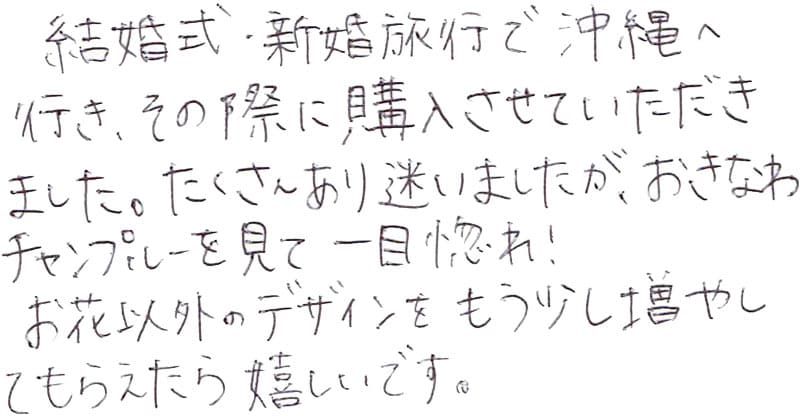 結婚式・新婚旅行で沖縄へ
行き、その際に購入させていただき
ました。たくさんあり迷いましたが、おきなわ
チャンプルーを見て一目惚れ!
お花以外のデザインをもう少し増やし
てもらえたら嬉しいです。